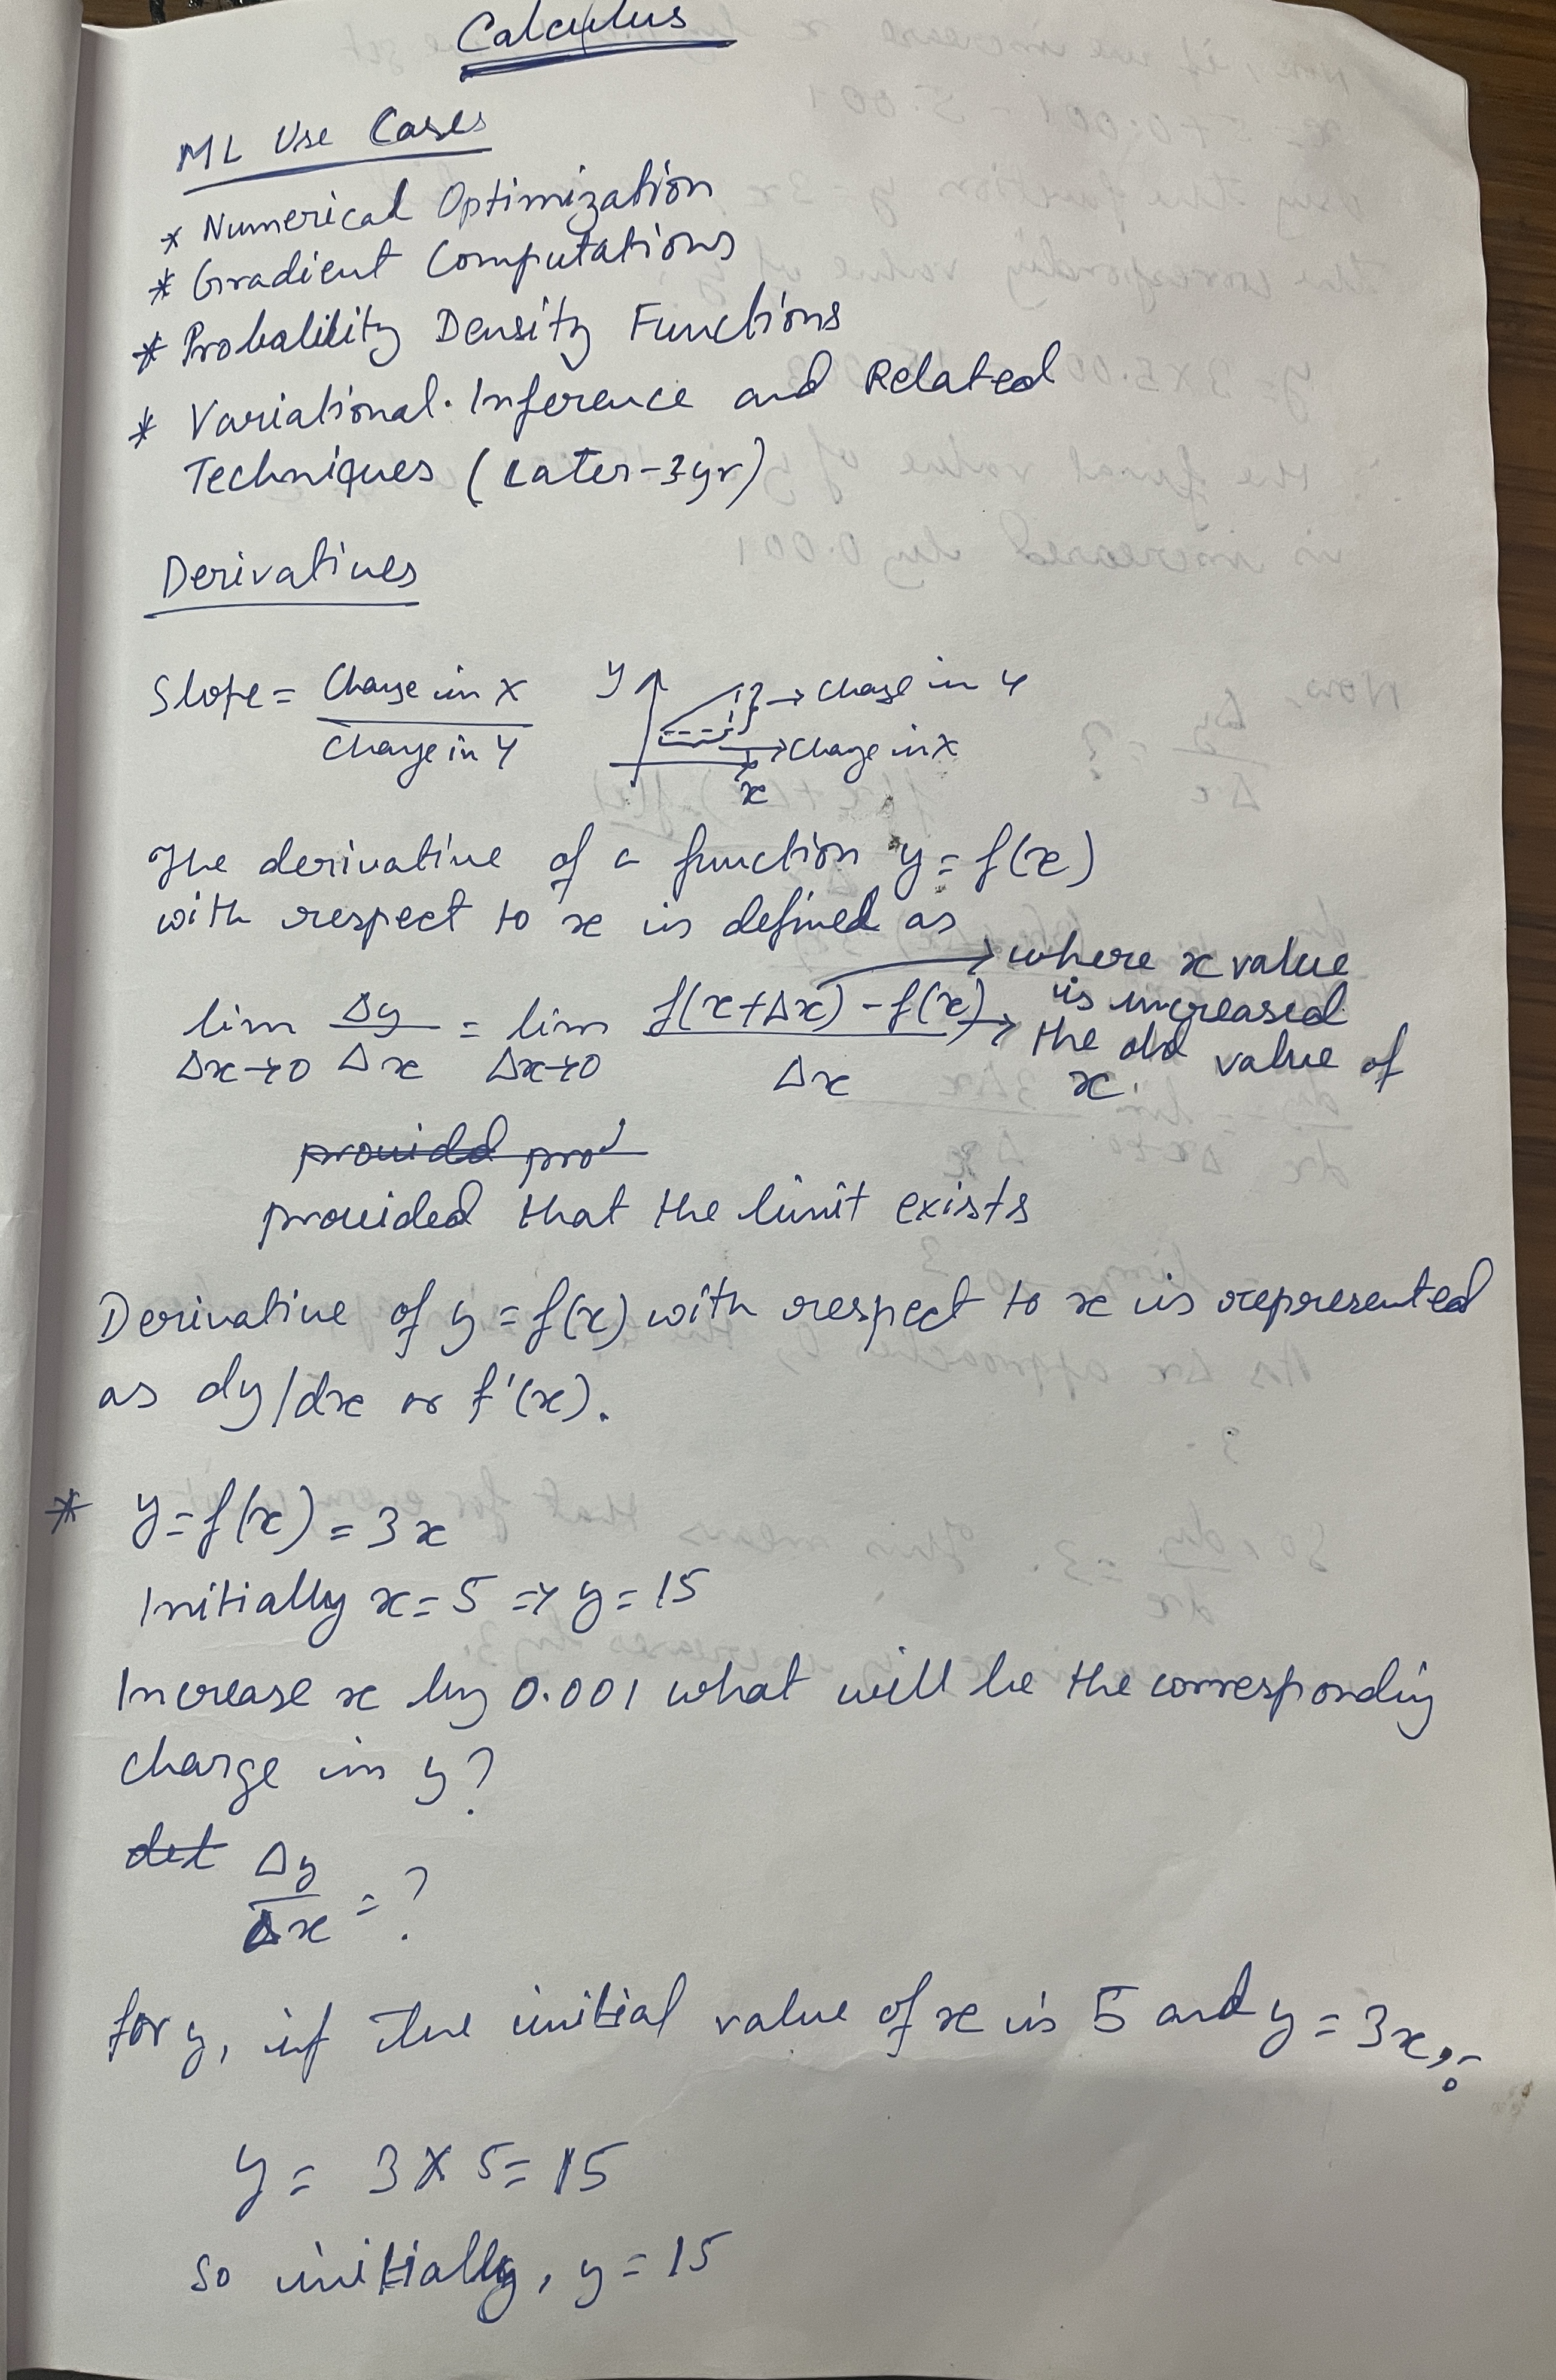 Calculus
ML Use Cases
* Numerical Optimization
* Gradient Computations
* Probability Density Functions
* Variational. Inference and Related
Techniques (Later-3yr)
Derivatives
Slope = Change in X / Change in Y
y
→ Change in Y
→ Change in X
x
The derivative of a function y = f(x)
with respect to x is defined as
lim Δx→0 Δy/Δx = lim Δx→0 (f(x+Δx) - f(x))/Δx
→ where x value
is increased
→ the old value of
x.
provided that the limit exists
Derivative of y = f(x) with respect to x is represented
as dy/dx or f'(x).
* y = f(x) = 3x
Initially x = 5 => y = 15
Increase x by 0.001 what will be the corresponding
change in y?
Δy/Δx = ?
for y, if the initial value of x is 5 and y = 3x,
y = 3 X 5 = 15
So initially, y = 15